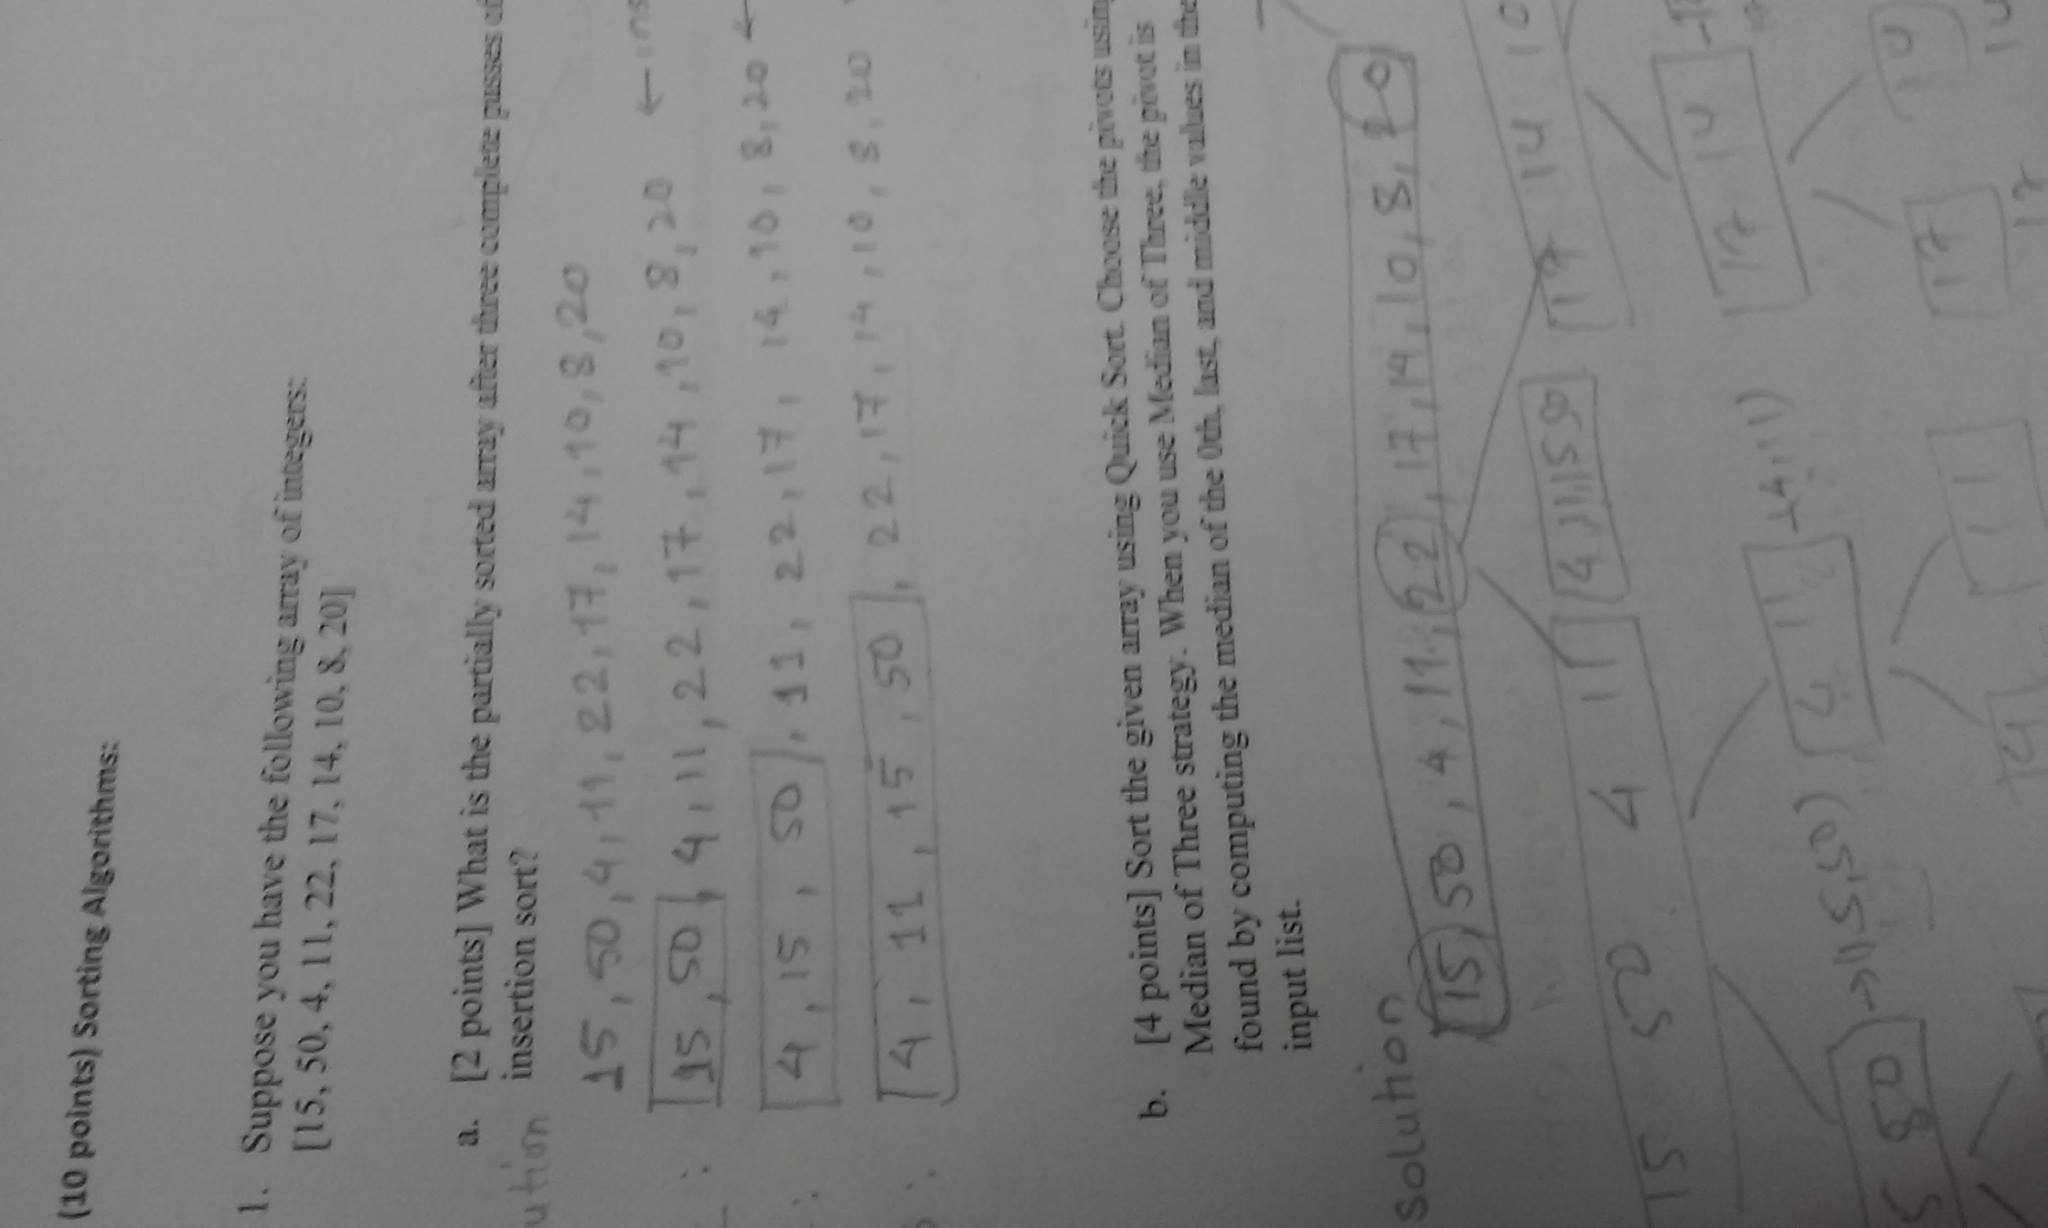 (10 points) Sorting Algorithms:
1. Suppose you have the following array of integers:
[15, 50, 4, 11, 22, 17, 14, 10, 8, 20]
a. [2 points] What is the partially sorted array after three complete passes of
ution insertion sort?
15, 50, 4, 11, 22, 17, 14, 10, 8, 20
: 15, 50, 4, 11, 22, 17, 14, 10, 8, 20 ← ins
: 4, 15, 50, 11, 22, 17, 14, 10, 8, 20 ←
: 4, 11, 15, 50, 22, 17, 14, 10, 8, 20
b. [4 points] Sort the given array using Quick Sort. Choose the pivots using
Median of Three strategy. When you use Median of Three, the pivot is
found by computing the median of the 0th, last, and middle values in the
input list.
Solution
15, 50, 4, 11, 22, 17, 14, 10, 8, 20
15 50 4 11 4,11,15 50 17 14 10
5 50 →(15,50) 4 11 →4,11) 17 14
4 11 17 14
17 14